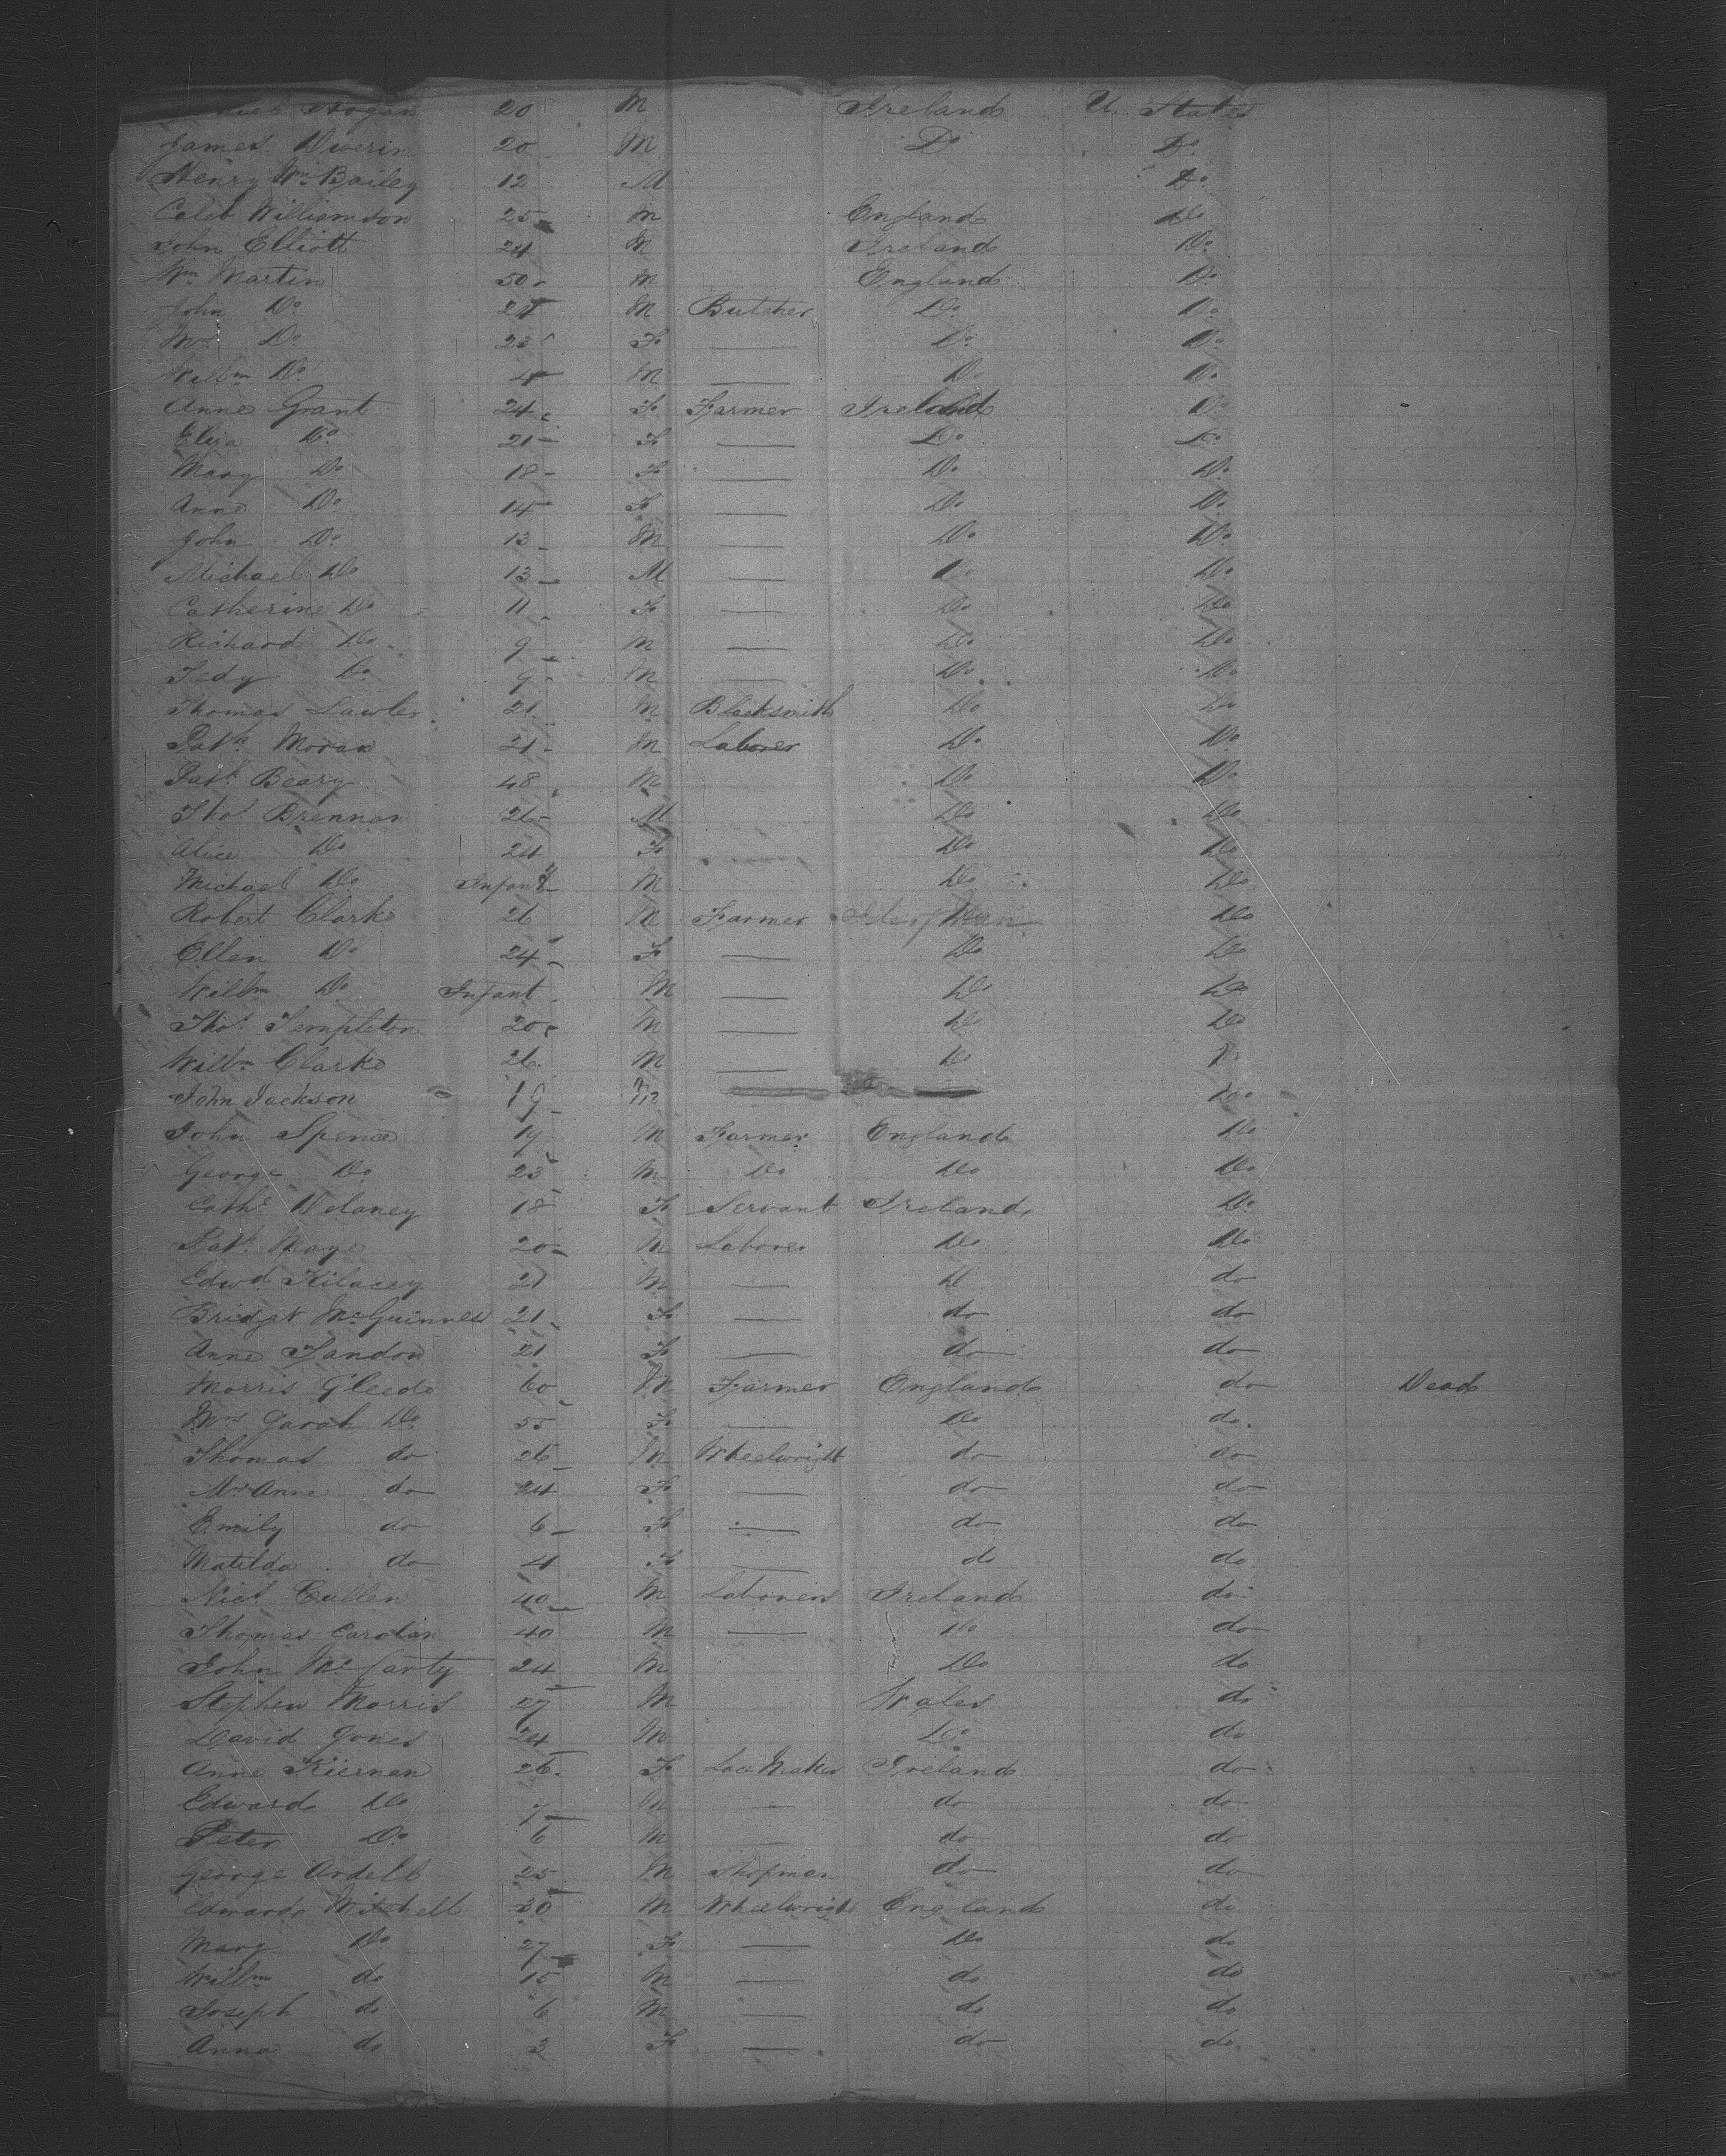 Hogan 20 M Ireland U. States
James Diverin 20 M Do Do
Henry Wm Bailey 12 M Do
Caleb Williamson 25 M England Do
John Elliott 24 M Ireland Do
Wm Martin 50 M England Do
John Do M Butcher Do Do
Mrs Do 23 F — Do Do
Willm Do 4 M — Do Do
Anne Grant 24 F Farmer Ireland Do
Eliza Do 21 F — Do Do
Mary Do 18 F — Do Do
Anne Do 14 F — Do Do
John Do 13 M — Do Do
Michael Do 13 M — Do Do
Catherine Do 11 F — Do Do
Richard Do 9 M — Do Do
Tedy Do 9 M — Do Do
Thomas Lawler 21 M Blacksmith Do Do
Patk Moran 21 M Laborer Do Do
Patk Beary 48 M Do Do
Thos Brennan 26 M Do Do
Alice Do 24 F Do Do
Michael Do Infant M Do Do
Robert Clarke 26 M Farmer Isle of Man Do
Ellen Do 24 F — Do Do
Willm Do Infant M — Do Do
Thos Templeton 20 M — Do Do
Willm Clarke 26 M — Do Do
John Jackson 19 M Do
John Spence 19 M Farmer England Do
George Do 23 M Do Do Do
Cathe Delaney 18 F Servant Ireland Do
Patk 20 M Laborer Do Do
Edwd Kilacey 21 M — D do
Bridget McGuinness 21 F — do do
Anne Landon 21 F — do do
Morris Gleede 60 M Farmer England do Dead
Mrs Sarah Do 55 F — Do do
Thomas do 26 M Wheelwright do do
Mrs Anne do 24 F — do do
Emily do 6 F — do do
Matilda do 4 F — do do
Nics Cullen 40 M Laborers Ireland do
Thomas Carolan 40 M — Do do
John McCarty 24 M Do do
Stephen Morris 27 M Wales do
David Jones 24 M Do do
Anne Kiernan 26 F Lace Maker Ireland do
Edward Do 7 M — do do
Peter Do 6 M — do do
George Ardell 25 M Shopman do do
Edward Mitchell 30 M Wheelwright England do
Mary Do 27 F — Do do
Willm do 10 M — do do
Joseph do 6 M — do do
Anna do 3 F — do do